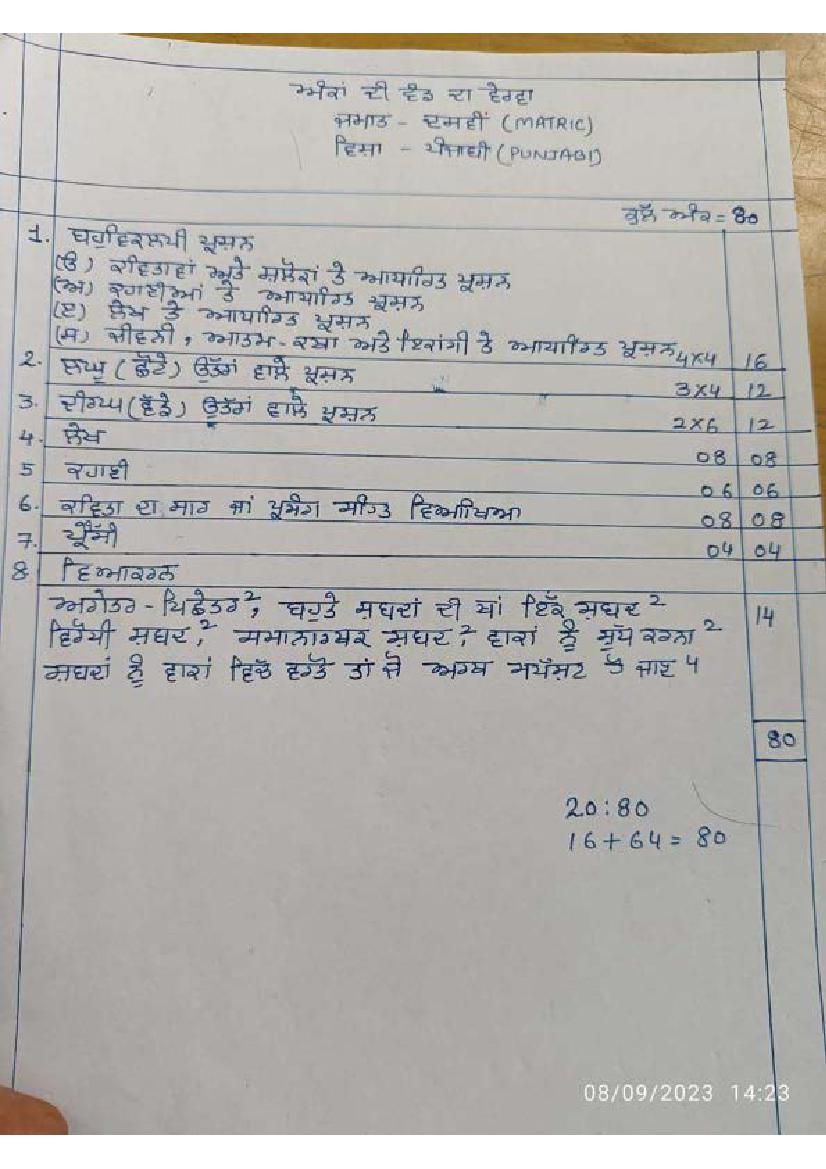 ਅੰਕਾਂ ਦੀ ਵੰਡ ਦਾ ਵੇਰਵਾ
ਜਮਾਤ - ਦਸਵੀਂ (MATRIC)
ਵਿਸ਼ਾ - ਪੰਜਾਬੀ (PUNJABI)
ਕੁੱਲ ਅੰਕ = 80
1. ਬਹੁਵਿਕਲਪੀ ਪ੍ਰਸ਼ਨ
(ੳ) ਕਵਿਤਾਵਾਂ ਅਤੇ ਸ਼ਲੋਕਾਂ ਤੇ ਆਧਾਰਿਤ ਪ੍ਰਸ਼ਨ
(ਅ) ਕਹਾਣੀਆਂ ਤੇ ਆਧਾਰਿਤ ਪ੍ਰਸ਼ਨ
(ੲ) ਲੇਖ ਤੇ ਆਧਾਰਿਤ ਪ੍ਰਸ਼ਨ
(ਸ) ਜੀਵਨੀ, ਆਤਮ-ਕਥਾ ਅਤੇ ਇਕਾਂਗੀ ਤੇ ਆਧਾਰਿਤ ਪ੍ਰਸ਼ਨ 4x4 16
2. ਲਘੂ (ਛੋਟੇ) ਉੱਤਰਾਂ ਵਾਲੇ ਪ੍ਰਸ਼ਨ 3x4 12
3. ਦੀਰਘ (ਵੱਡੇ) ਉੱਤਰਾਂ ਵਾਲੇ ਪ੍ਰਸ਼ਨ 2x6 12
4. ਲੇਖ 08 08
5 ਕਹਾਣੀ 06 06
6. ਕਵਿਤਾ ਦਾ ਸਾਰ ਜਾਂ ਪ੍ਰਸੰਗ ਸਹਿਤ ਵਿਆਖਿਆ 08 08
7. ਪ੍ਰੈੱਸੀ 04 04
8 ਵਿਆਕਰਨ
ਅਗੇਤਰ - ਪਿਛੇਤਰ², ਬਹੁਤੇ ਸ਼ਬਦਾਂ ਦੀ ਥਾਂ ਇੱਕ ਸ਼ਬਦ² 14
ਵਿਰੋਧੀ ਸ਼ਬਦ,² ਸਮਾਨਾਰਥਕ ਸ਼ਬਦ,² ਵਾਕਾਂ ਨੂੰ ਸ਼ੁੱਧ ਕਰਨਾ²
ਸ਼ਬਦਾਂ ਨੂੰ ਵਾਕਾਂ ਵਿੱਚ ਵਰਤੋ ਤਾਂ ਜੋ ਅਰਥ ਸਪੱਸ਼ਟ ਹੋ ਜਾਣ 4
80
20:80
16+64= 80
08/09/2023 14:23